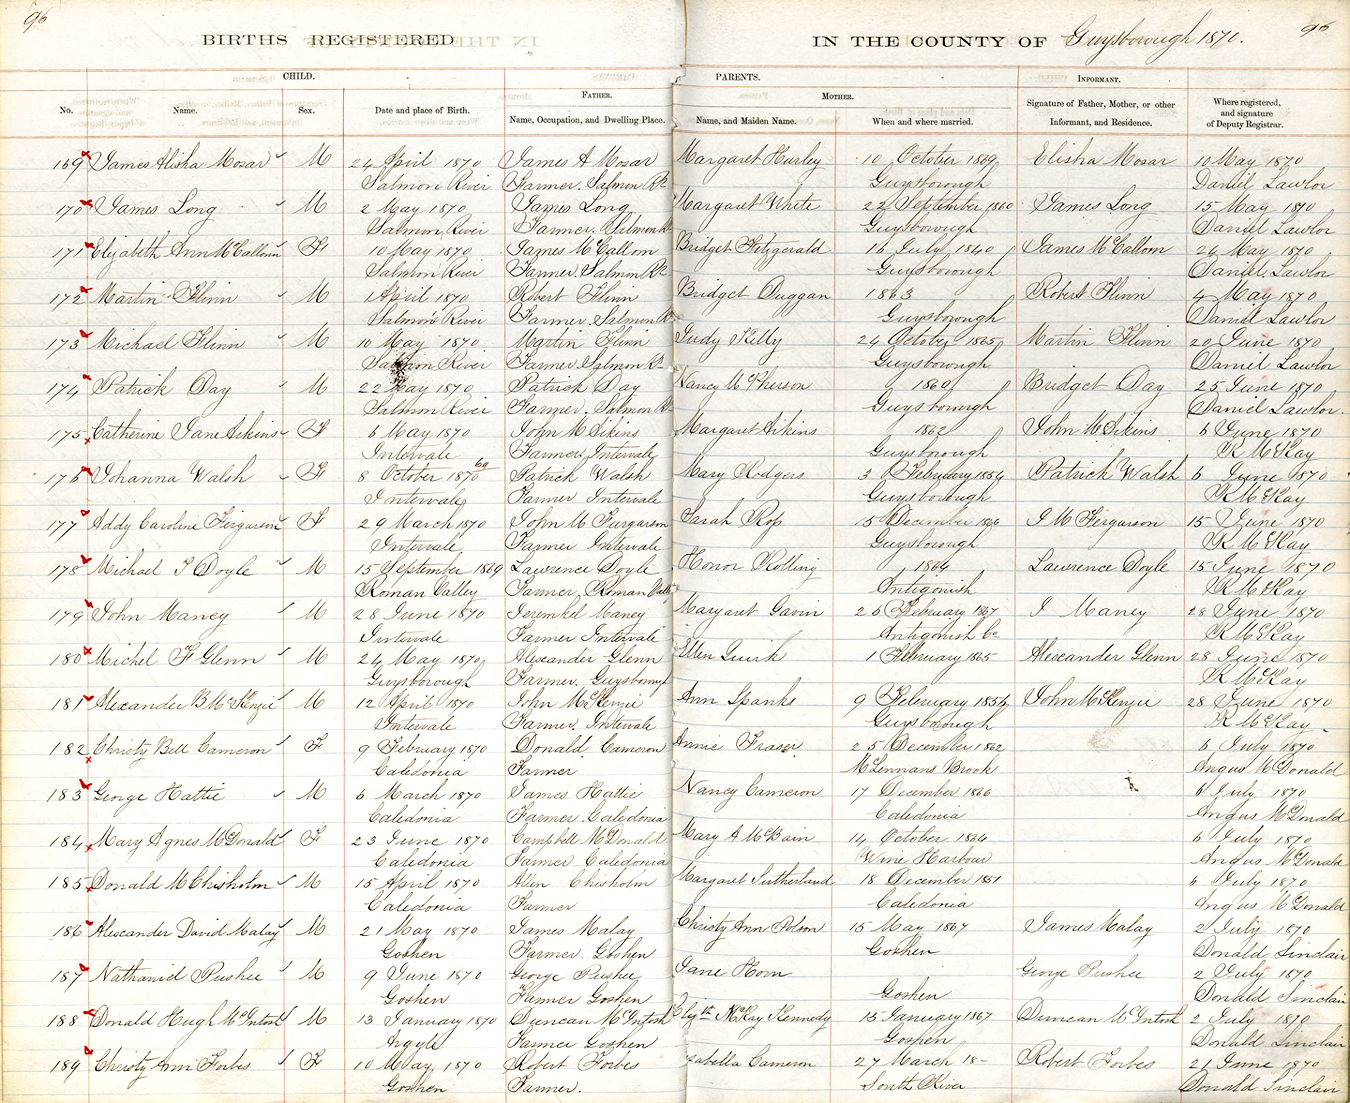 96
96
BIRTHS REGISTERED IN THE COUNTY OF Guysborough 1870.
CHILD. PARENTS. INFORMANT.
FATHER. MOTHER.
No. Name. Sex. Date and place of Birth. Name, Occupation, and Dwelling Place. Name, and Maiden Name. When and where married. Signature of Father, Mother, or other Informant, and Residence. Where registered, and signature of Deputy Registrar.
169 James Alisha Mosar M 24 April 1870 James A Mosar Margaret Hurley 10 October 1869 Elisha Mosar 10 May 1870
Salmon River Farmer. Salmon Rr Guysborough Daniel Lawlor
170 James Long M 2 May 1870 James Long Margaret White 22 September 1860 James Long 15 May 1870
Salmon River Farmer. Salmon Guysborough Daniel Lawlor
171 Elizabeth Ann McCallom F 10 May 1870 James McCallom Bridget Fitzgerald 16 July 1840 James McCallom 24 May 1870
Salmon River Farmer. Salmon Rr Guysborough Daniel Lawlor
172 Martin Flinn M 1 April 1870 Robert Flinn Bridget Duggan 1863 Robert Flinn 4 May 1870
Salmon River Farmer. Salmon Guysborough Daniel Lawlor
173 Michael Flinn M 10 May 1870 Martin Flinn Judy Kelly 24 October 1865 Martin Flinn 20 June 1870
Salmon River Farmer. Salmon Rr Guysborough Daniel Lawlor
174 Patrick Day M 22 May 1870 Patrick Day Nancy McPherson 1860 Bridget Day 25 June 1870
Salmon River Farmer. Salmon Guysborough Daniel Lawlor.
175 Catherine Jane Aikins F 6 May 1870 John M Aikins Margaret Aikins 1862 John M Aikins 6 June 1870
Intervale Farmer. Intervale Guysborough R McKay
176 Johanna Walsh F 8 October 1870 69 Patrick Walsh Mary Rodgers 3 February 1854 Patrick Walsh 6 June 1870
Intervale Farmer Intervale Guysborough R McKay
177 Addy Caroline Ferguson F 29 March 1870 John M Furgarson Sarah Rop 15 December 1866 J M Fergarson 15 June 1870
Intervale Farmer Intervale Guysborough R McKay
178 Michael P Doyle M 15 September 1869 Lawrence Doyle Honor 1864 Lawrence Doyle 15 June 1870
Roman Valley Farmer, Roman Antigonish R McKay
179 John Maney M 28 June 1870 Maney Margaret Gavin 26 February 1867 J Maney 28 June 1870
Intervale Farmer Intervale Antigonish Co R McKay
180 Michel F Glenn M 24 May 1870 Alexcander Glenn Ellen Quirk 1 February 1865 Alexcander Glenn 28 June 1870
Guysborough Farmer. Guysborough R McKay
181 Alexcander B McKenzie M 12 April 1870 John McKenzie Ann Spanks 9 February 1854 John McKenzie 28 June 1870
Intervale Farmer. Intervale Guysborough R McKay
182 Christy Bell Cameron F 9 February 1870 Donald Cameron Annie Fraser 25 December 1862 6 July 1870
Caledonia Farmer McLennans Brook Angus McDonald
183 George Hattie M 6 March 1870 James Hattie Nancy Cameron 17 December 1866 6 July 1870
Caledonia Farmer. Caledonia Caledonia Angus McDonald
184 Mary Agnes McDonald F 23 June 1870 Campbell McDonald Mary A McBain 14 October 1864 6 July 1870
Caledonia Farmer Caledonia Wine Harbour Angus McDonald
185 Donald McChisholm M 15 April 1870 Allen Chisholm Margaret Sutherland 18 December 1851 6 July 1870
Caledonia Farmer Caledonia Angus McDonald
186 Alexcander David Malay M 21 May 1870 James Malay Christy Ann Polson 15 May 1867 James Malay 2 July 1870
Goshen Farmer. Goshen Goshen Donald Sinclair
187 Nathaniel Pushee M 9 June 1870 George Pushee Jane Horn George Pushee 2 July 1870
Goshen Farmer Goshen Goshen Donald Sinclair
188 Donald Hugh McIntosh M 13 January 1870 Duncan McIntosh Elizth McKay Kennedy 15 January 1867 Duncan McIntosh 2 July 1870
Argyle Farmer Goshen Goshen Donald Sinclair
189 Christy Ann Forbes F 10 May, 1870 Robert Forbes Isabella Cameron 27 March 18- Robert Forbes 21 June 1870
Goshen Farmer. South River Donald Sinclair